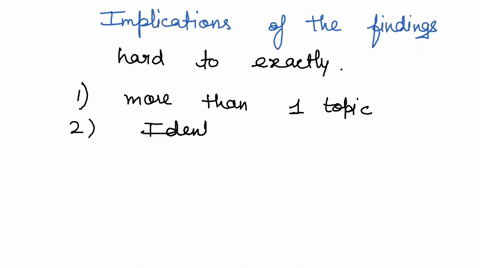 Implications of the findings
hard to exactly.
1) more than 1 topic
2) Iden